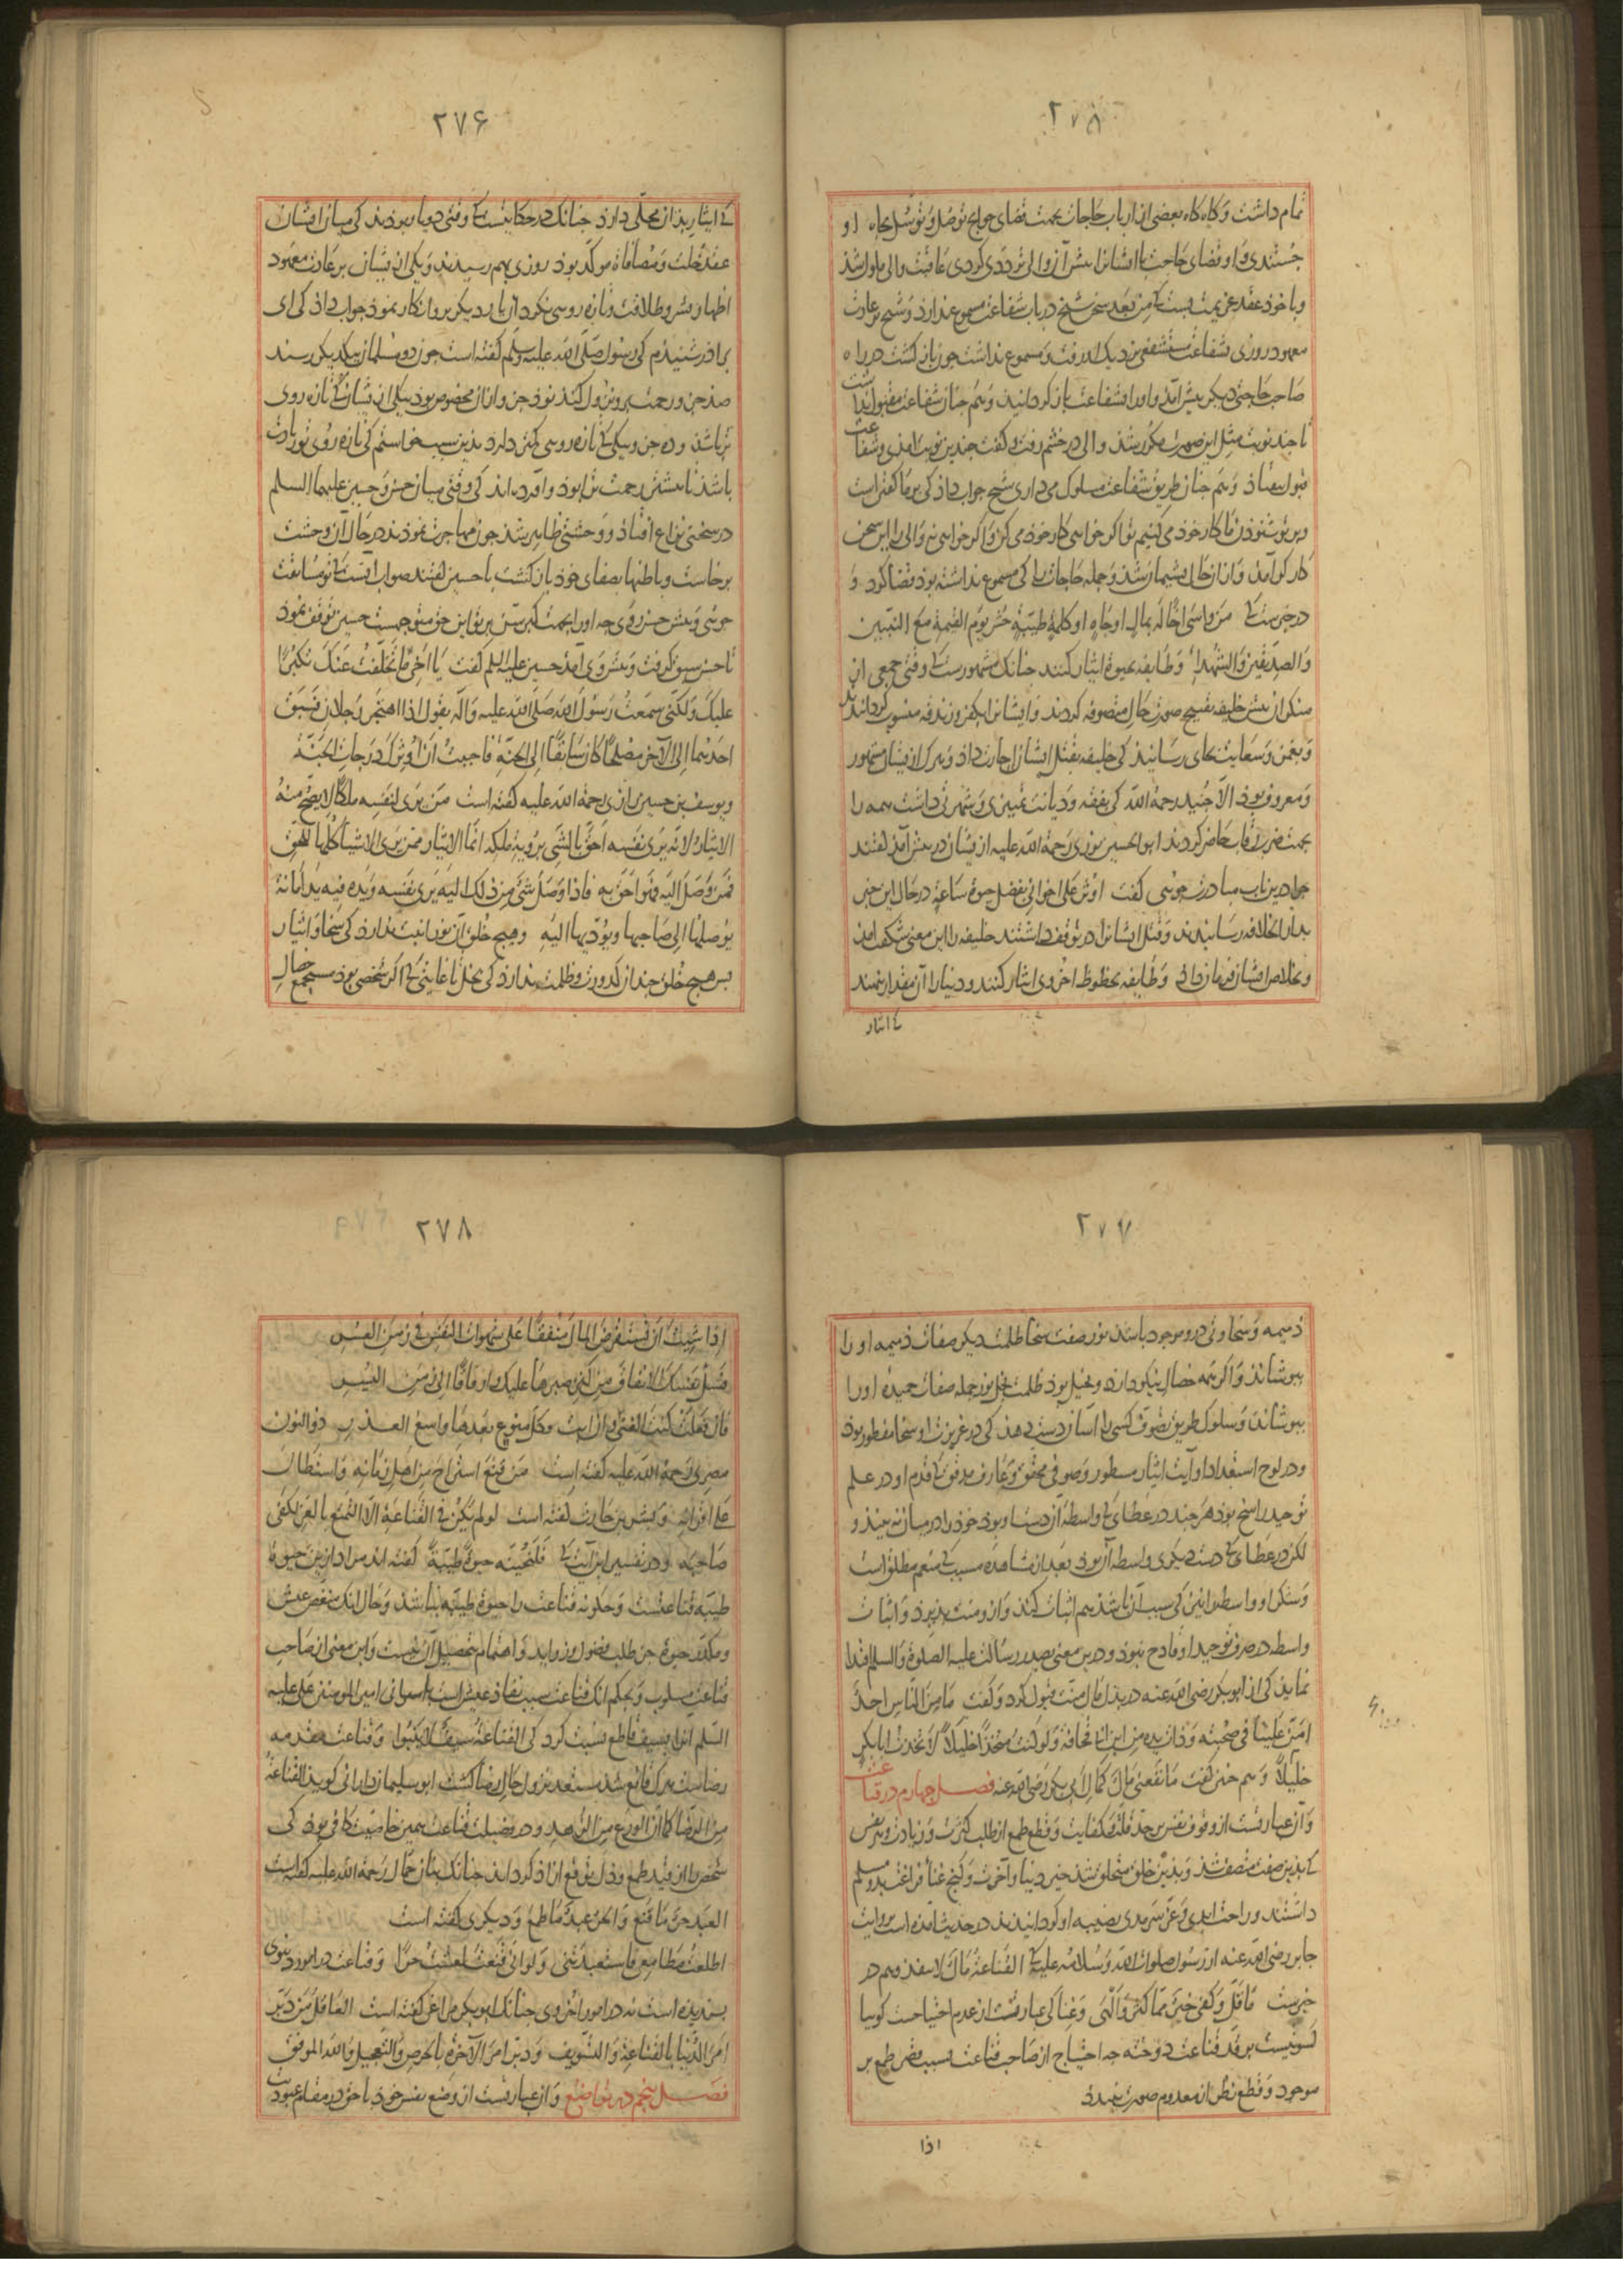 ۲۷۵
تمام داشت و کاه کاه بعضی از ارباب حاجات بجهت قضای حوایج توصل و توسل بجاه او
جستندی و او قضای حاجت را ایشانرا پیش آن والی ترددی کردی عاقبت والی ملول شد
و با خود عقد عزیمت بست که من بعد سخن شیخ در باب شفاعت مسموع ندارد و شیخ بر عادت
معهود روزی بشفاعت مستشفعی نزدیک او رفت و مسموع نداشت چون باز کشت در راه
صاحب حاجتی دیکر پیش آمد و او را بشفاعت باز کردانید و هم چنان شفاعت مقبول نداشت
تا چند نوبت مثل این صورت مکرر شد والی در خشم رفت و کفت چندین نوبت آمدی و شفاعت
قبول نیفتاد و هم چنان طریق شفاعت مسلوک می داری شیخ جواب داد کی بر ما کفتن است
و بر تو شنودن ما کار خود می کنیم تو اکر خواهی کار خود می کن و اکر خواهی نه والی را این سخن
کارکر آمد و از ان حال پشیمان شد و جمله حاجات را کی مسموع نداشته بود قضا کرد و
در خبرست که من واسی اخا له بمال او جاه او کلمة طیبة حشر یوم القیمة مع النبیین
والصدیقین والشهداء و طایفه بحیوة ایثار کنند چنانک مشهورست که وقتی جمعی از
منکران پیش خلیفه تقبیح صورت حال متصوفه کردند و ایشانرا بکفر و زندقه منسوب کردانیدند
و بغمز و سعایت بجای رسانیدند کی خلیفه بقتل ایشان اجازت داد و هرک از ایشان مشهور
و معروف بود الا جنید رحمة الله کی بفقه و دیانت تمیزی و شهرتی داشت همه را
بجهت ضرب رقاب حاضر کردند ابو الحسین نوری رحمة الله علیه از میان در پیش آمد کفتند
چرا درین باب مبادرت جوئی کفت اوثر علی اخوانی بفضل حیوة ساعة در حال این خبر
بدار الخلافه رسانیدند و قتل ایشانرا در توقف داشتند خلیفه را این معنی شکفت آمد
و بخلاص ایشان فرمان داد و طایفه بحظوظ اخروی ایثار کنند و دنیا را آن مقدار ننهند
که ایثار
۲۷۶
که ایثار بدان محلی دارد چنانک در حکایتست که وقتی دو یار بودند کی میان ایشان
عقد خلت و مصافاة موکد بود روزی بهم رسیدند و یکی از ایشان بر عادت معهود
اظهار بشر و طلاقت و تازه روسی نکرد آن یار دیکر بر وانکار نمود جواب داد کی ای
برادر شنیدم کی رسول صلی الله علیه و سلم کفته است چون دو مسلمان بیکدیکر رسند
صد جزو رحمت بر و نزول کند نود جزو از ان مخصوص بود بیکی از یشان که تازه روی
تر باشد و ده جزو بیکی که تازه روسی کمتر دارد بدین سبب خواستم کی تازه روی تو زیادت
باشد تا بیشتر رحمت ترا بود و آورده اند کی وقتی میان حسن و حسین علیهما السلم
در سخنی نزاع افتاد و وحشتی ظاهر شد چون مهاجرت نمودند در حال آن وحشت
برخاست و باطنها بصفای خود باز کشت با حسین کفتند صواب آنست که تو مسابقت
جوئی و پیش حسن روی چه او را بجهت کبر سن بر تو این حق متوجهست حسین توقف نمود
تا حسن سبق کرفت و پیش وی آمد حسین علیه السلم کفت یا اخی ما تخلفت عنک تکبرا
علیک ولکنی سمعت رسول الله صلی الله علیه وآله یقول اذا اهتجر رجلان فسبق
احدهما الی الآخر مصلحا کان سابقا الی الجنة فاحببت ان اوثرک درجات الجنة
و یوسف بن حسین رازی رحمة الله علیه کفته است من یری لنفسه ملکا لا یصح منه
الایثار لانه یری نفسه احق بالشی برویة ملکه انما الایثار ممن یری الاشیاء کلها للحق
فمن وصل الیه فهو احق به فاذا وصل شئ من ذلک الیه یری نفسه و یده فیه ید امانة
یوصلها الی صاحبها و یؤدیها الیه و هیچ خلق آن نورانیت ندارد کی سخا و ایثار
پس هیچ خلق چندان کدورت و ظلمت ندارد کی بخل تا غایتی کی اکر شخصی بود مستجمع خصال
۲۷۷
ذمیمه و سخاوتی درو موجود باشد نور صفت سخا ظلمت دیکر صفات ذمیمه او را
بپوشاند و اکر همه خصال نیکو دارد و بخیل بود ظلمت بخل نور جمله صفات حمیده او را
بپوشاند و سلوک طریق تصوف کسی را آسان دست دهد کی در غریزت او سخا مفطور بود
و در لوح استعداد او آیت ایثار مسطور و صوفی محقق و عارف مدقق که قدم او در علم
توحید راسخ بود هر چند در عطای کی واسطه آن دست او بود خود را در میان نه بیند و
لکن در عطای که دست دیکری واسطه آن بود بعد از مشاهده مسبب کی منعم مطلق است
و شکر او واسطه را نیز کی سبب آن باشد هم اثبات کند و ازو منت پذیرد و اثبات
واسطه در صرف توحید او قادح نبود و درین معنی بصدر رسالت علیه الصلوة والسلم اقتدا
نماید کی از ابوبکر رضی الله عنه در بذل مال منت قبول کرد و کفت ما من الناس احد
امن علینا فی صحبته و ذات یده من ابن ابی قحافة ولو کنت متخذا خلیلا لاتخذت ابابکر
خلیلا و هم چنین کفت ما نفعنی مال کمال ابی بکر رضی الله عنه فصل چهارم در قناعت
و آن عبارتست از وقوف نفس بر حد قلت و کفایت و قطع طمع از طلب کثرت و زیادت و هر نفس
که بدین صفت متصف شد و بدین خلق متخلق شد خیر دنیا و آخرت و کنج غنا و فراغت بدو مسلم
داشتند و راحت ابدی و عز سرمدی نصیبه او کردانیدند در حدیث آمده است بروایت
جابر رضی الله عنه از رسول صلوات الله و سلامه علیه که القناعة مال لا ینفد و هم در
خبرست ما قل و کفی خیر مما کثر و الهی و غنا کی عبارتست از عدم احتیاجست کویا
کسوتیست بر قد قناعت دوخته چه احتیاج از صاحب قناعت بسبب قصر طمع بر
موجود و قطع نظر از معدوم صورت نبندد
اذا
۲۷۸
اذا شئت ان تستقرض المال منفقا علی شهوات النفس فی زمن العسر
فسل نفسک الانفاق من کنز صبرها علیک و ارفاقا الی زمن الیسر
فان فعلت کنت الغنی وان ابت وکل منوع بعدها واسع العذر ذو النون
مصری رحمة الله علیه کفته است من قنع استراح من اهل زمانه و استطال
علی اقرانه و بشر بن حارث کفته است لو لم یکن فی القناعة الا التمتع بالعز لکفی
صاحبه و در تفسیر این آیت که فلنحیینه حیوة طیبة کفته اند مراد ازین حیوة
طیبه قناعتست و چکونه قناعت را حیوة طیبه نباشد و حال آنک منغص عیش
و مکدر حیوة جز طلب فضول و زواید و اهتمام بتحصیل آن نیست و این معنی از صاحب
قناعت مسلوب و بحکم انک قناعت سبب نفاد عیش است امیر المومنین علی علیه
السلم آنرا بسیف قاطع نسبت کرد کی القناعة سیف لا ینبوا و قناعت مقدمه
رضاست هرک قانع شد مستعد نزول حال رضا کشت ابو سلیمان دارانی کوید القناعة
من الرضا کما ان الورع من الزهد و در فضیلت قناعت همین خاصیت کافی بود کی
شخص را از قید طمع و ذل توقع آزاد کرداند چنانک بنان حمال رحمة الله علیه کفته است
العبد حر ما قنع والحر عبد ما طمع و دیکری کفته است
اطعت مطامعی فاستعبدتنی ولو انی قنعت لعشت حرا و قناعت در امور دنیوی
پسندیده است نه در امور اخروی چنانک ابوبکر مراغی کفته است العاقل من دبر
امر الدنیا بالقناعة والتسویف و دبر امر الآخرة بالحرص والتعجیل والله الموفق
فصل پنجم در تواضع و آن عبارتست از وضع نفس خود با حق در مقام عبودیت